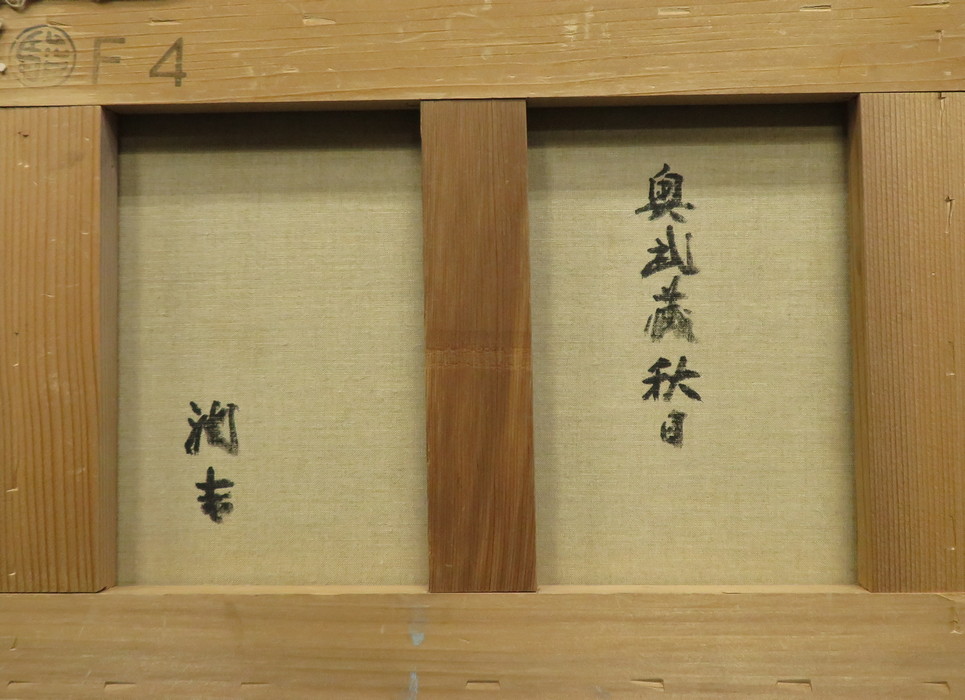 F 4
奥武蔵秋日
潤吉